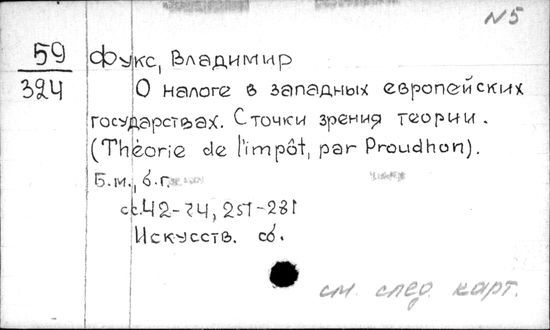 N5
59 Фукс, Владимир
324 О налоге в западных европейских
государствах. С точки зрения теории.
(Théorie de l'impôt, par Proudhon).
Б.м., б.г.
сс. 42-74, 251-281
Искусств. сб.
см. след. карт.